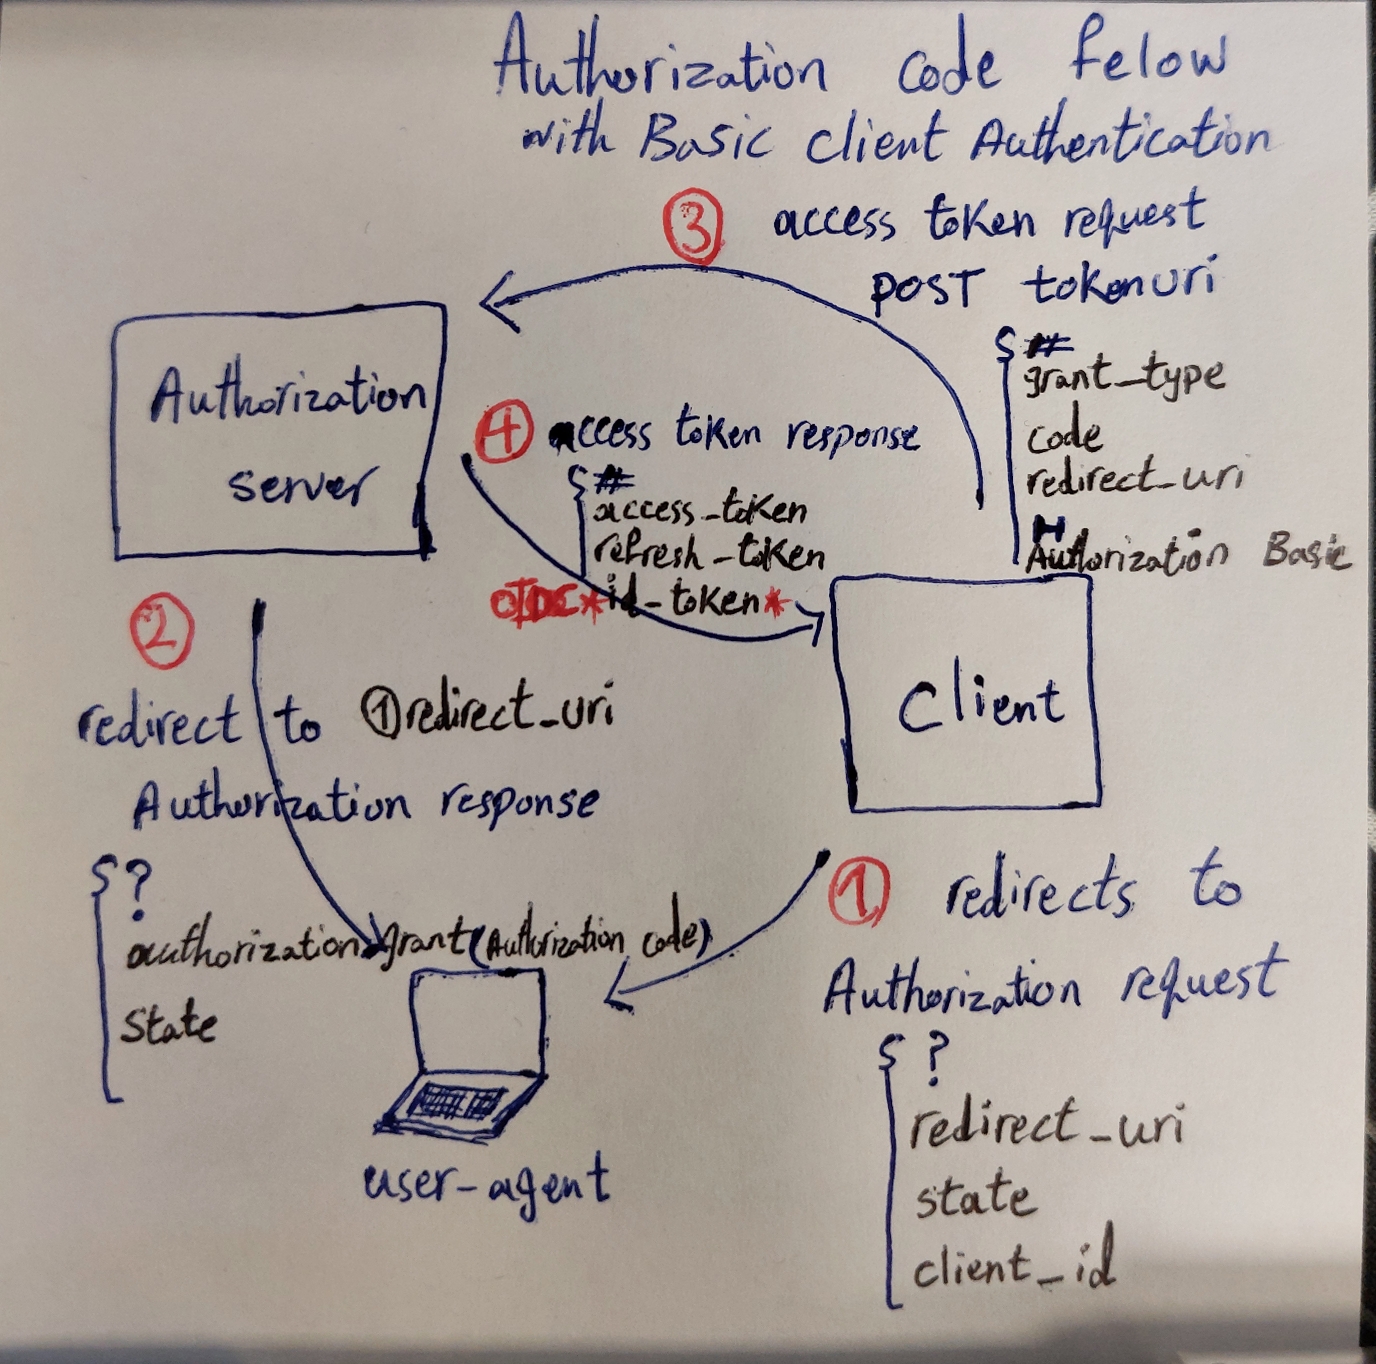 Authorization code felow
with Basic client Authentication
③ access token request
POST tokenuri
grant_type
code
redirect_uri
H
Authorization Basic
Authorization
server
④ access token response
access_token
refresh_token
OIDC *id_token*
Client
②
redirect to ①redirect_uri
Authorization response
?
authorization grant (Authorization code)
state
user-agent
① redirects to
Authorization request
?
redirect_uri
state
client_id